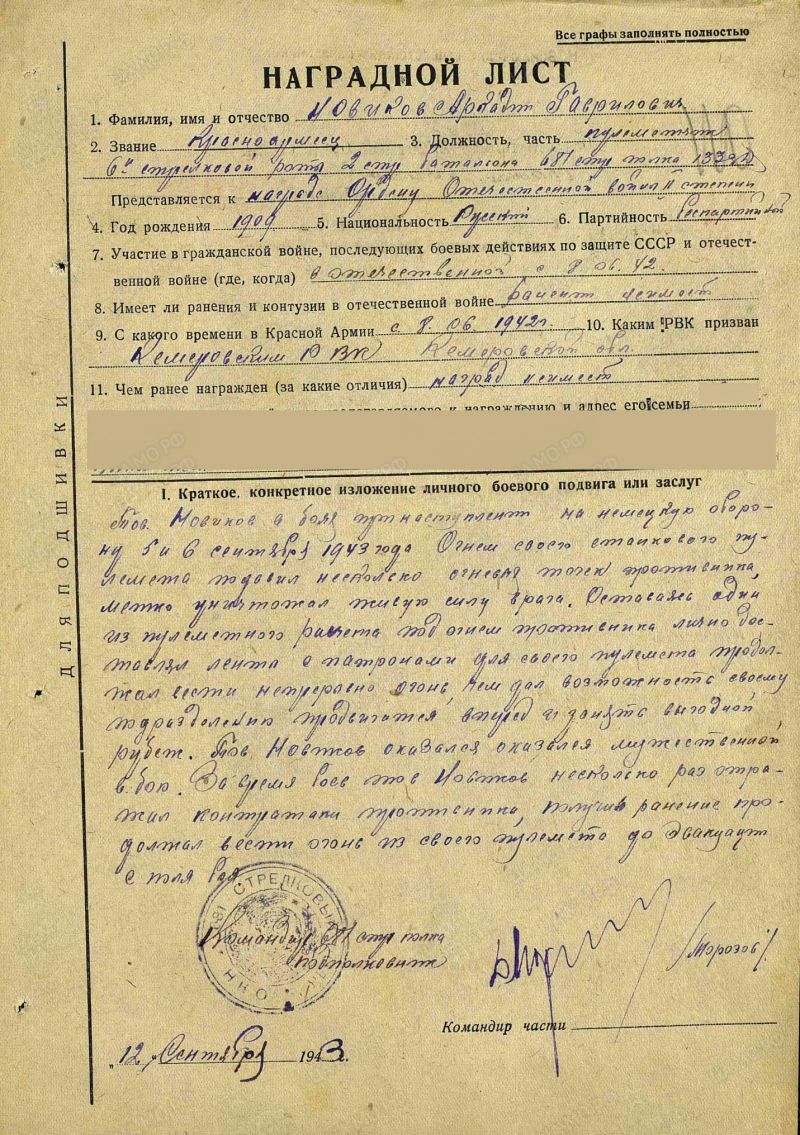 Все графы заполнять полностью
НАГРАДНОЙ ЛИСТ
1. Фамилия, имя и отчество Новиков Аркадий Гаврилович
2. Звание Красноармеец 3. Должность, часть пулеметчик
6й стрелковой роты 2 стр баталиона 681 стр полка 133 сд
Представляется к награде Ордену Отечественной войны II степени
4. Год рождения 1909 5. Национальность Русский 6. Партийность беспартийной
7. Участие в гражданской войне, последующих боевых действиях по защите СССР и отечест-
венной войне (где, когда) в отечественной с 8.06.42.
8. Имеет ли ранения и контузии в отечественной войне ранений неимеет
9. С какого времени в Красной Армии с 8.06.1942г. 10. Каким РВК призван
Кемеровским РВК Кемеровской обл.
11. Чем ранее награжден (за какие отличия) наград неимеет
представляемого к награждению и адрес его семьи
I. Краткое, конкретное изложение личного боевого подвига или заслуг
Тов. Новиков в боях при наступлении на немецкую оборо-
ну 5 и 6 сентября 1943 года Огнем своего станкового пу-
лемета подавил несколко огневых точек противника,
метко уничтожал живую силу врага. Оставаясь один
из пулеметного расчета под огнем противника лично дос-
тавлял лента с патронами для своего пулемета продол-
жал вести непрерывно огонь, чем дал возможность своему
подразделению продвигатся вперед и занять выгодной
рубеж. Тов. Новиков оказался оказался мужественной
в бою. За время боев тов Новиков несколко раз отра-
жал контратаки противника, получив ранение про-
должал вести огонь из своего пулемета до эвакуации
с поля боя
681 СТРЕЛКОВЫЙ
Командир 681 стр полка
подполковник
/Морозов/
Командир части
"12 Сентября 1943 г.
ДЛЯ ПОДШИВКИ